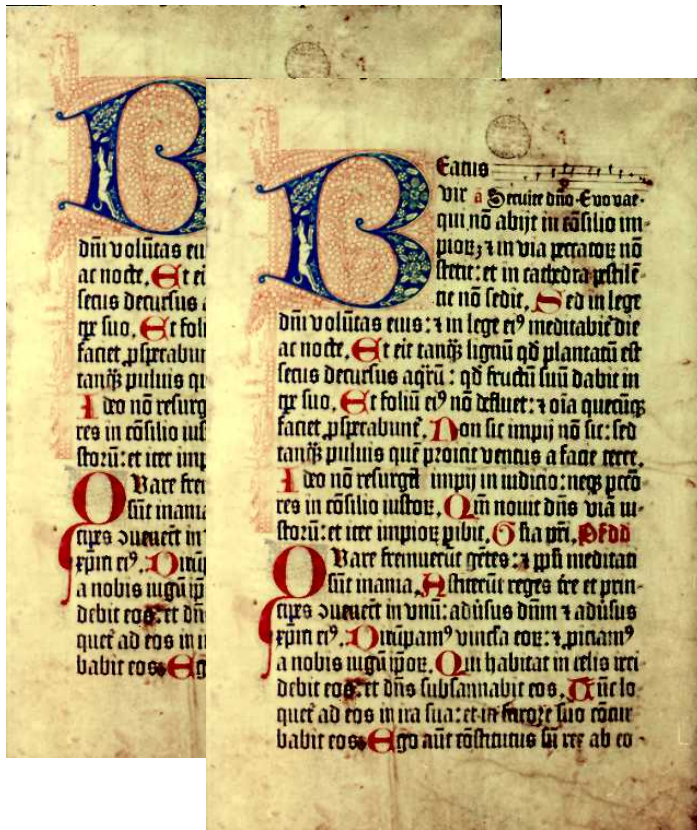 dñi volũtas eiu
ac nocte. Et ei
secus decursus a
qᷓ suo. Et foli
faciet ꝓsperabun
tanqᷓ puluis qu
Ideo nõ resurg
res in cõsilio ius
storũ: et iter imp
Quare frem
sũt inania
cipes ↄuenerũt in
xp̃m eiꝰ. Dirũp
a nobis iugũ ip̄
debit eos: et dñ
quet̃ ad eos in i
babit eos. Ego
Beatus
vir a Seruite dño. Evovae.
qui nõ abijt in cõsilio im-
pioꝝ ⁊ in via peccatoꝝ nõ
stetit: et in cathedra pestilẽ-
tie nõ sedit. Sed in lege
dñi volũtas eius: ⁊ in lege eiꝰ meditabit̃ die
ac nocte. Et erit tanqᷓ lignũ qd̃ plantatũ est
secus decursus aqᷓrũ: qd̃ fructũ suũ dabit in
tꝑe suo. Et foliũ eiꝰ nõ defluet: ⁊ oĩa quecũqᷓ
faciet ꝓsperabunt̃. Non sic impij nõ sic: sed
tanqᷓ puluis quẽ proicit ventus a facie terre.
Ideo nõ resurgũt impij in iudicio: neqꝫ pctõ-
res in cõsilio iustoꝝ. Qm̃ nouit dñs viã iu-
storũ: et iter impioꝝ ꝑibit. Gl̃ia pr̃i. Ps̃ dd
Quare fremuerũt gẽtes: ⁊ pp̃li meditati
sũt inania. Astiterũt reges t̃re et prin-
cipes ↄuenerũt in vnũ: aduẽsus dñm ⁊ aduẽsus
xp̃m eiꝰ. Dirũpamꝰ vincl̃a eoꝝ: ⁊ ꝓiciamꝰ
a nobis iugũ ipõꝝ. Qui habitat in celis irri-
debit eos: et dñs subsannabit eos. Tũc lo
quet̃ ad eos in ira sua: et in furore suo cõtur
babit eos. Ego aũt cõstitutus sũ rex ab eo-